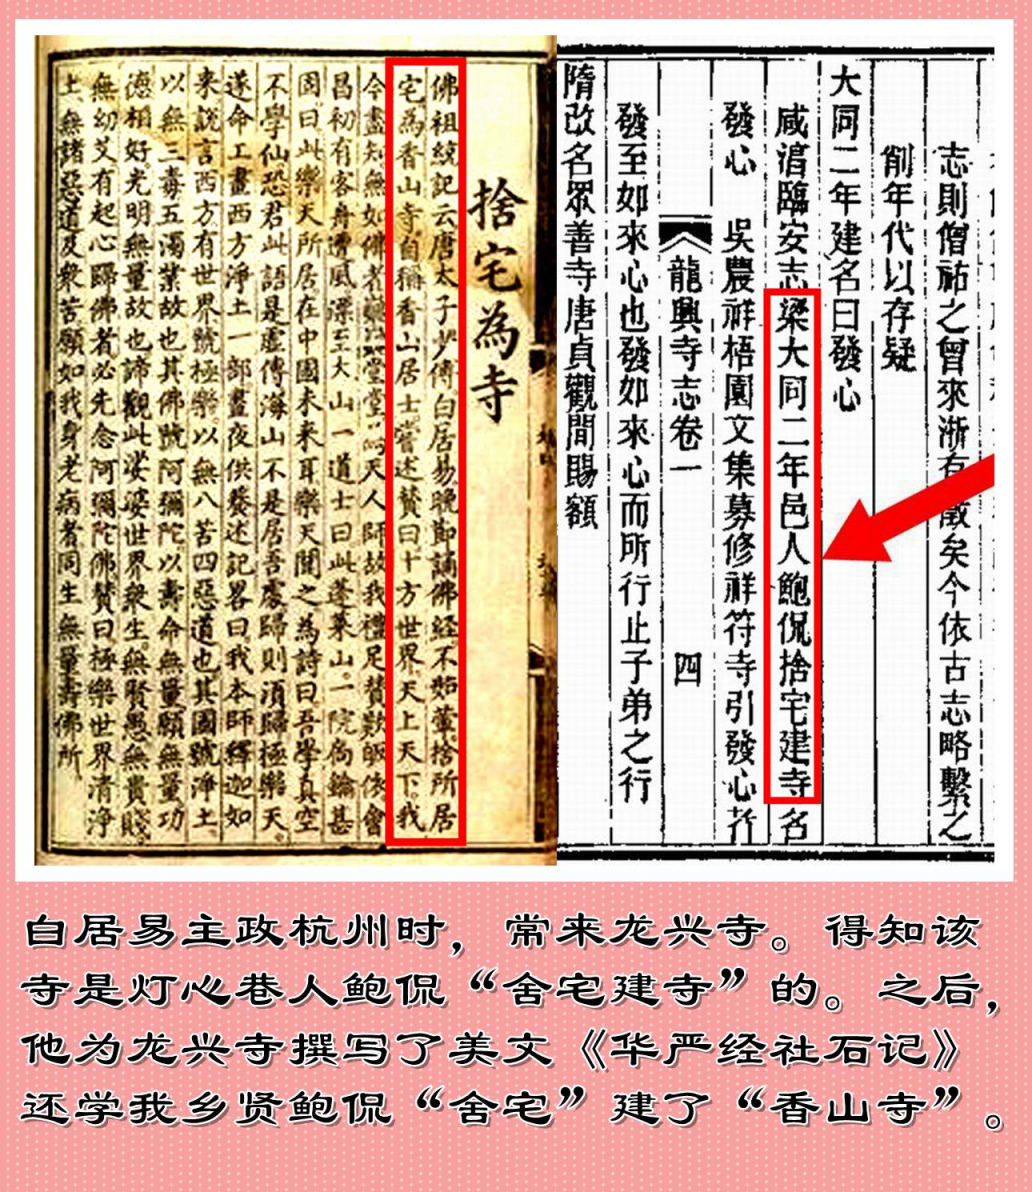 捨宅為寺
佛祖統記云唐太子少傅白居易晚節誦佛經。不茹葷。捨所居
宅為香山寺自稱香山居士嘗述贊曰十方世界天上天下。我
今盡知無如佛者巍巍堂堂為天人師故我禮足贊歎皈依會
昌初有客舟遭風漂至大山一道士曰此蓬萊山。一院扃鑰甚
固。曰此樂天所居在中國未來耳樂天聞之為詩曰吾學真空
不學仙恐君此語是虛傳海山不是居吾處歸則須歸極樂天。
遂命工畫西方淨土一部晝夜供養述記畧曰我本師釋迦如
來說言西方有世界號極樂以無八苦四惡道也其國號淨土
以無三毒五濁業故也其佛號阿彌陀以壽命無量願無量功
德相好光明無量故也諦觀此娑婆世界衆生。無賢愚無貴賤。
無幼艾有起心歸佛者必先念阿彌陀佛贊曰極樂世界清淨
土無諸惡道及衆苦願如我身老病者同生無量壽佛所
志則僧祐之曾來浙有徵矣今依古志略繫之
創年代以存疑
大同二年建名曰發心
咸淳臨安志梁大同二年邑人鮑侃捨宅建寺名
發心 吳農祥梧園文集募修祥符寺引發心者
龍興寺志卷一 四
發至如來心也發如來心而所行止子弟之行
隋改名眾善寺唐貞觀間賜額
白居易主政杭州时，常来龙兴寺。得知该
寺是灯心巷人鲍侃“舍宅建寺”的。之后，
他为龙兴寺撰写了美文《华严经社石记》
还学我乡贤鲍侃“舍宅”建了“香山寺”。